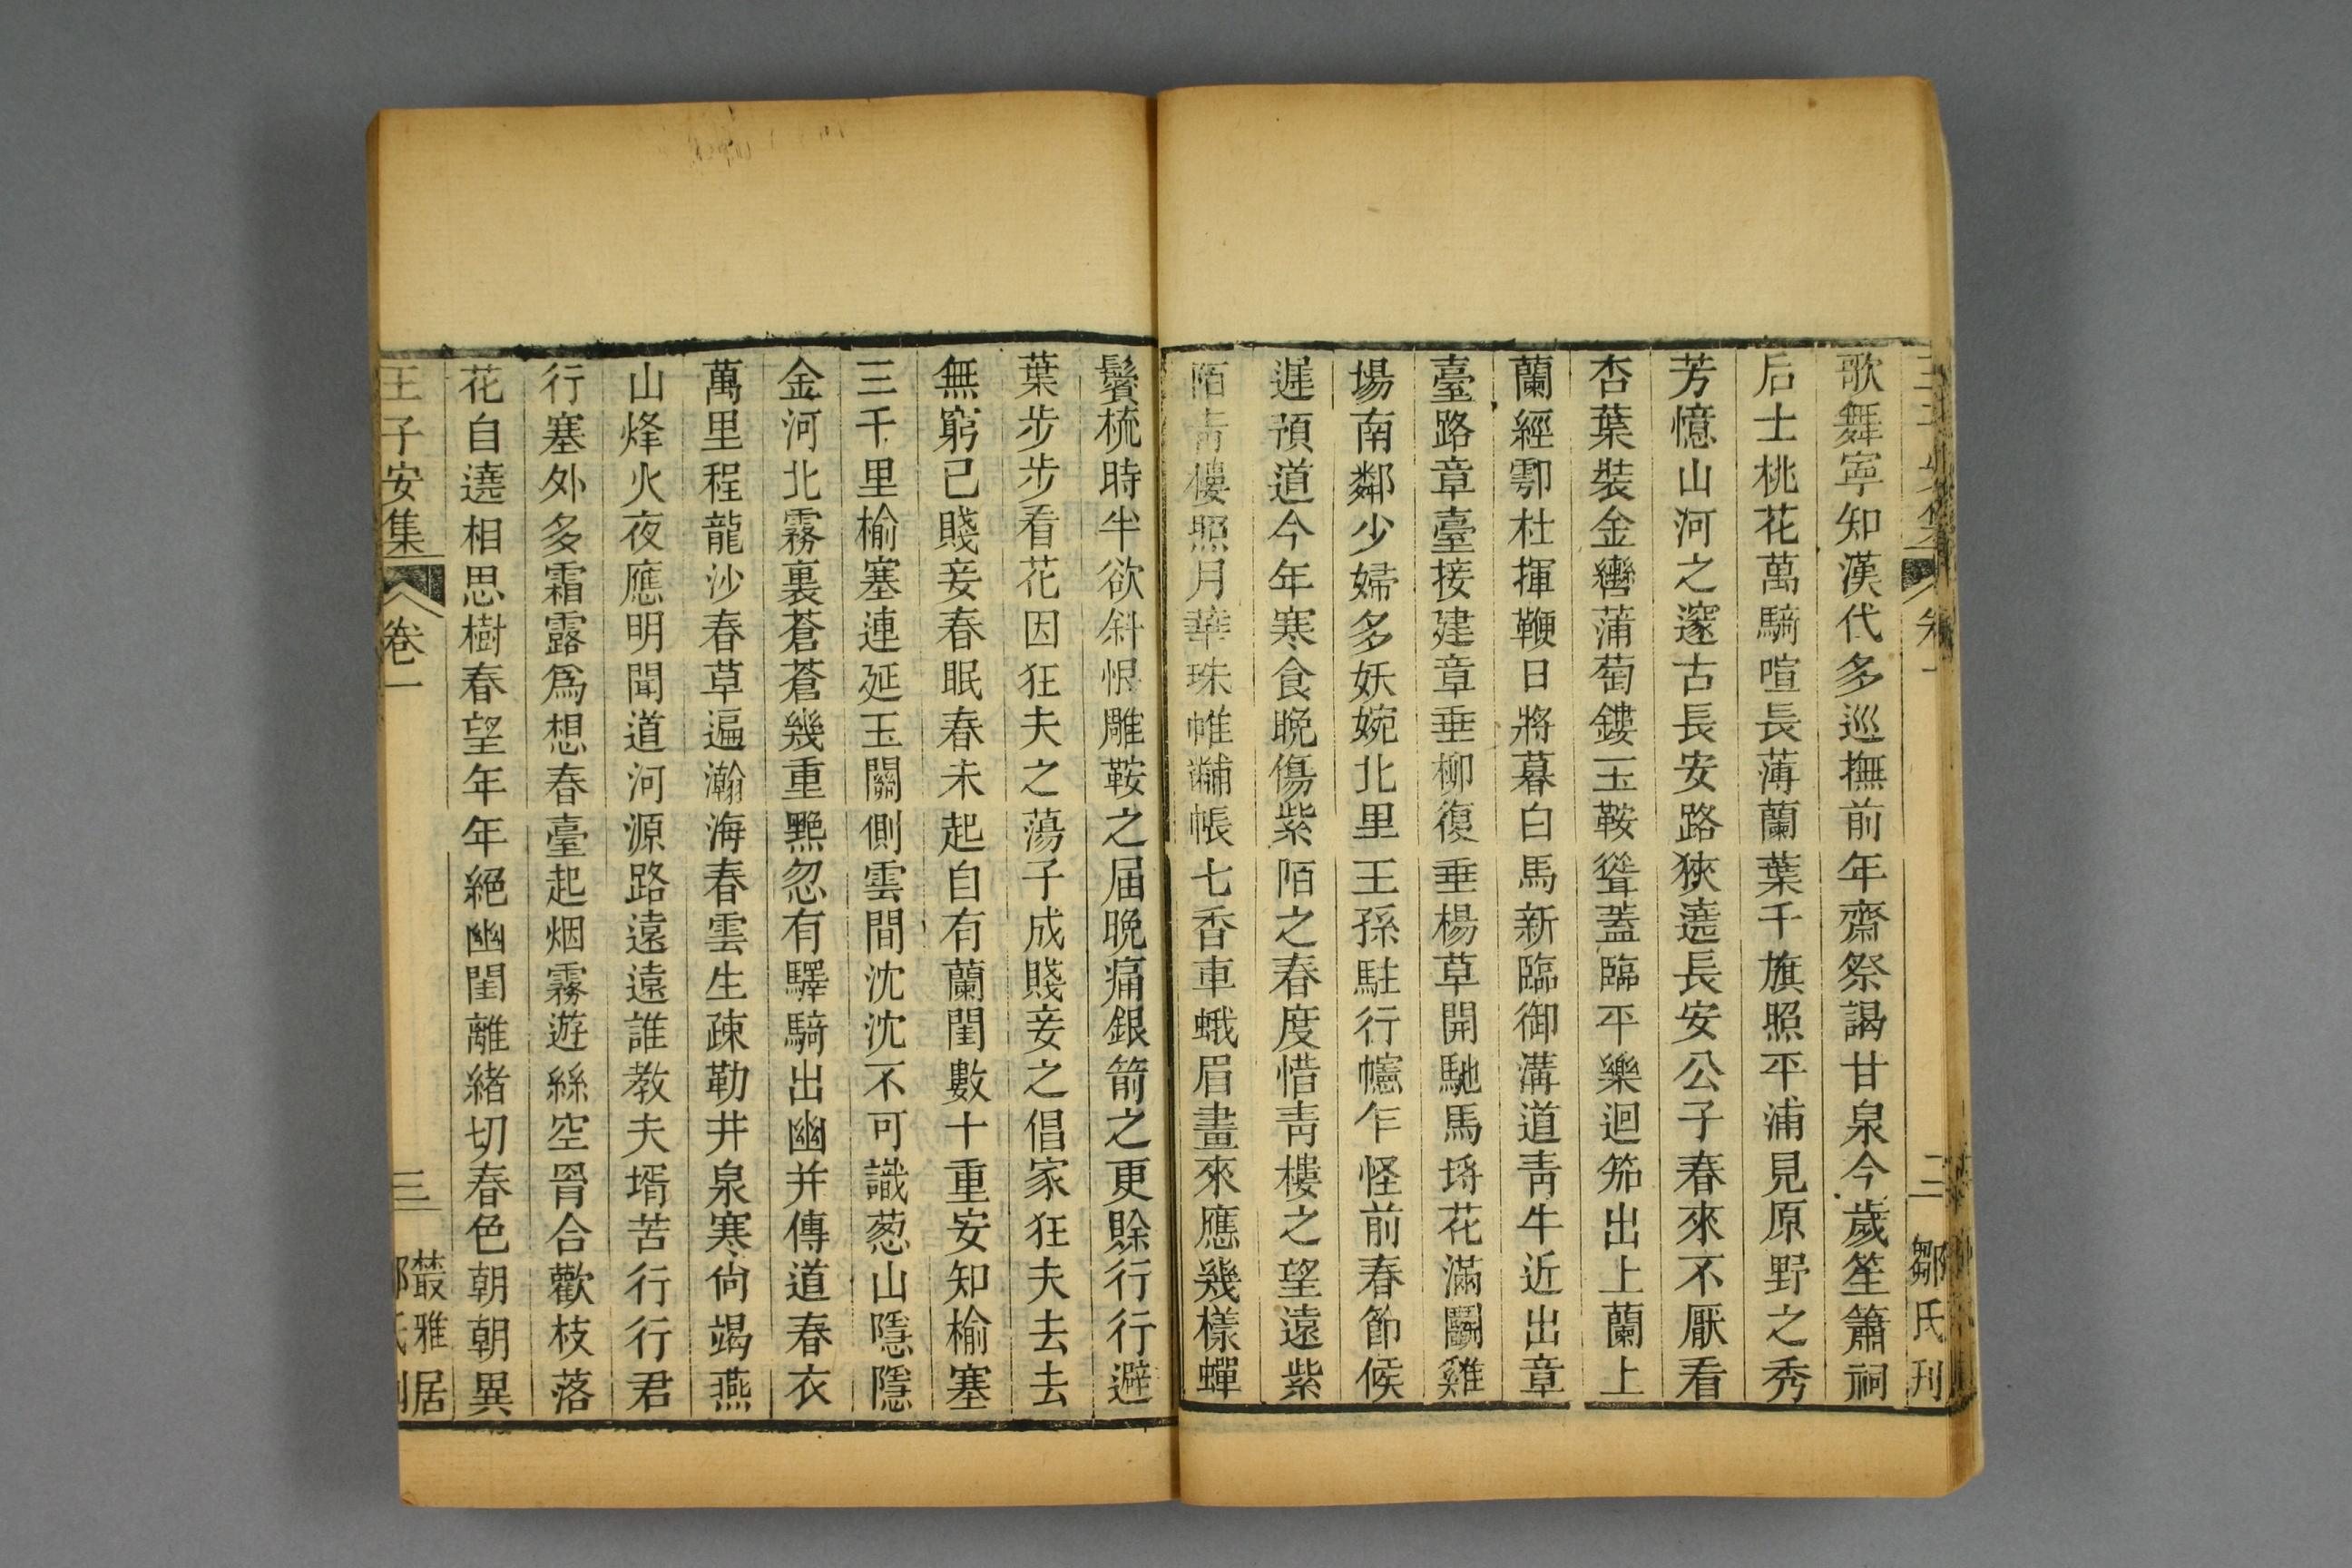 鄒氏刊
歌舞寧知漢代多巡撫前年齋祭謁甘泉今歲笙簫祠
后土桃花萬騎喧長薄蘭葉千旗照平浦見原野之秀
芳憶山河之邃古長安路狹遶長安公子春來不厭看
杏葉裝金轡蒲萄鏤玉鞍聳蓋臨平樂迴笳出上蘭上
蘭經鄠杜揮鞭日將暮白馬新臨御溝道靑牛近出章
臺路章臺接建章垂柳復垂楊草開馳馬埒花滿鬭雞
場南鄰少婦多妖婉北里王孫駐行幰乍怪前春節候
遲預道今年寒食晚傷紫陌之春度惜靑樓之望遠紫
陌靑樓照月華珠帷黼帳七香車蛾眉畫來應幾樣蟬
鬢梳時半欲斜恨雕鞍之屆晚痛銀箭之更賒行行避
葉步步看花因狂夫之蕩子成賤妾之倡家狂夫去去
無窮已賤妾春眠春未起自有蘭閨數十重安知榆塞
三千里榆塞連延玉關側雲間沈沈不可識葱山隱隱
金河北霧裏蒼蒼幾重黑忽有驛騎出幽并傳道春衣
萬里程龍沙春草遍瀚海春雲生疎勒井泉寒尙竭燕
山烽火夜應明聞道河源路遠遠誰教夫壻苦行行君
行塞外多霜露爲想春臺起烟霧遊絲空罥合歡枝落
花自遶相思樹春望年年絕幽閨離緒切春色朝朝異
王子安集
卷一
三
叢雅居